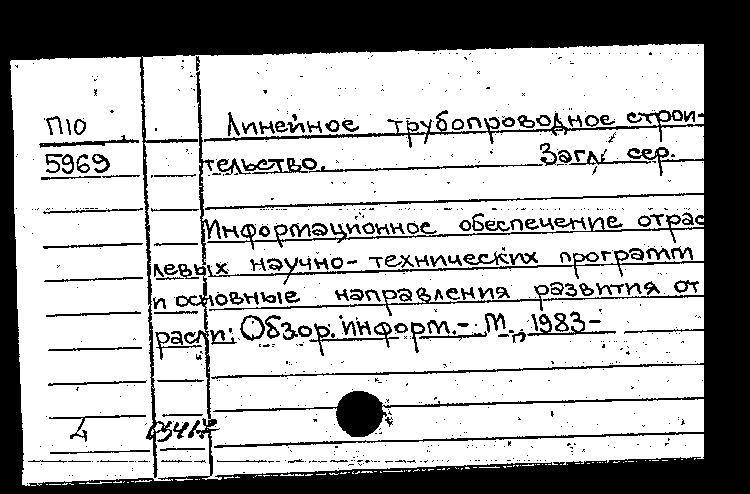 П10 Линейное трубопроводное строи-
5969 тельство. Загл. сер.
Информационное обеспечение отрас
левых научно-технических программ
и основные направления развития от
расли: Обзор. информ. - М., 1983-